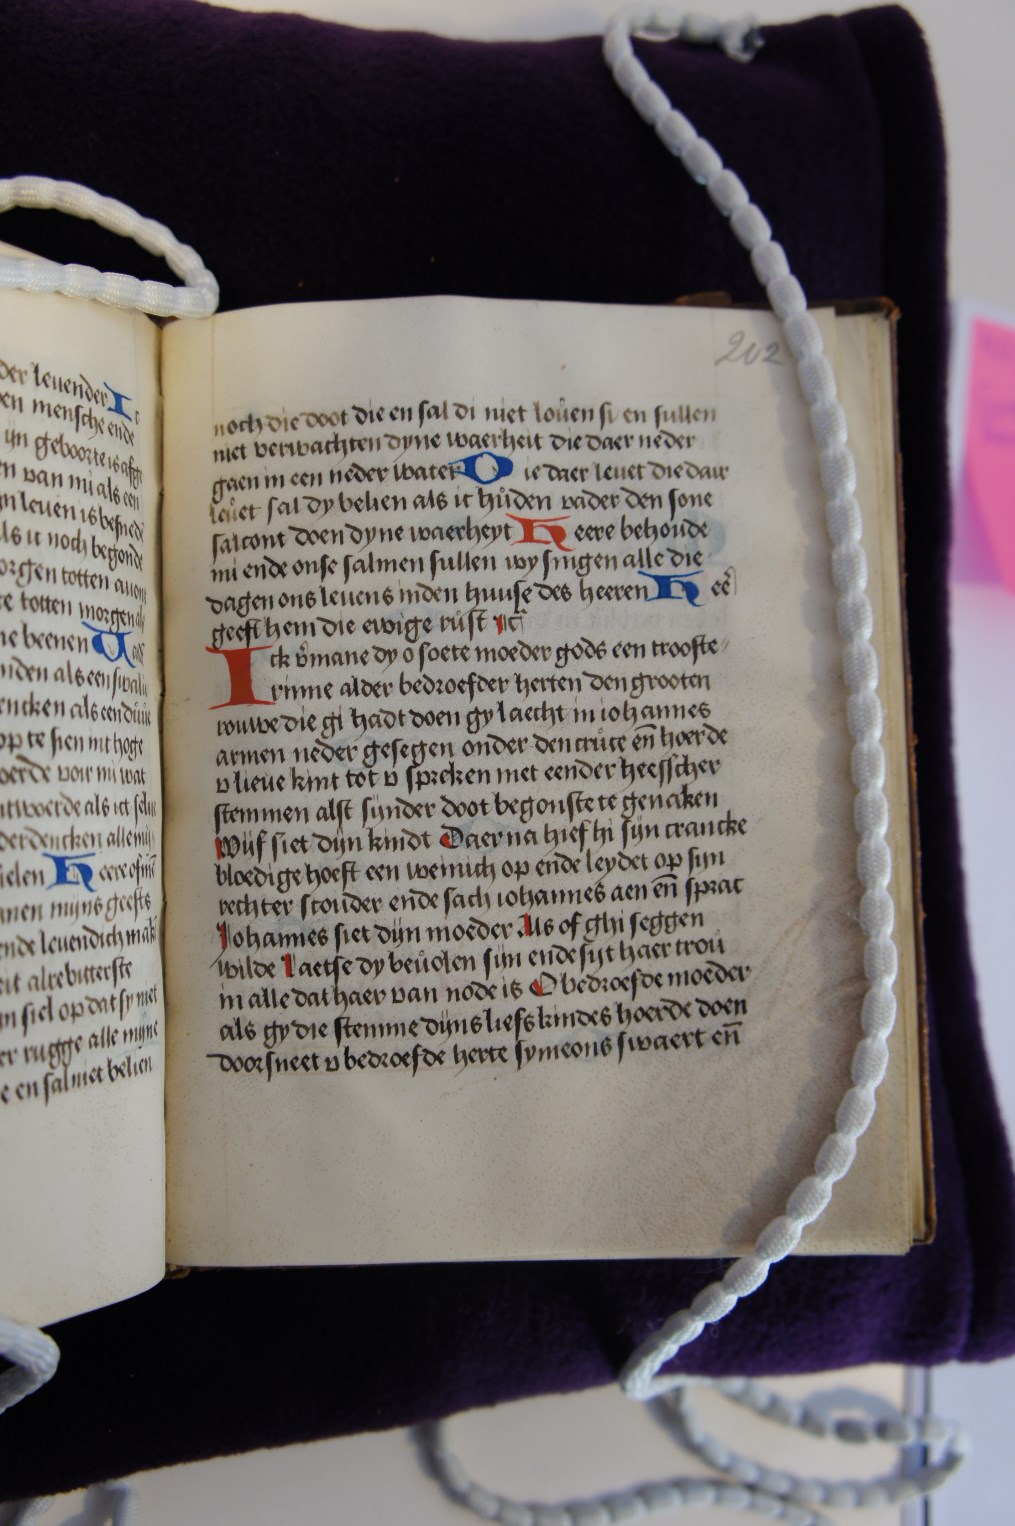 der leuender I
en mensche ende
ijn geboorte is
n van mi als een
n leuen is
ls ic noch begonde
orgen totten
te totten morgen
ne beenen
nden als een
ncken als een
op te sien int hoge
oerde voir mi wat
ntwoerde als ict
det dencken alle
ielen Heere
anen mijns geests
nde leuendich
eit alre bitterste
n siel op dat sy niet
er rugge alle mijne
e en sal niet belien
202
noch die doot die en sal di niet louen si en sullen
niet verwachten dyne waerheit die daer neder
gaen in een neder water Die daer leuet die daer
leuet sal dy belien als ic hůden vader den sone
sal cont doen dyne waerheyt Heere behoude
mi ende onse salmen sullen wy singen alle die
dagen ons leuens inden huuse des heeren Heē
geeft hem die ewige růst
Ick v̄mane dy o soete moeder gods een trooste
rinne alder bedroefder herten den grooten
rouwe die gi hadt doen gy laecht in iohannes
armen neder gesegen onder den crůce en̄ hoerde
v lieue kint tot v spreken met eender heesscher
stemmen alst sijnder doot begonste te genaken
Wijf siet dijn kindt Daer na hief hi sijn crancke
bloedige hoeft een wenich op ende leydet op sijn
rechter scouder ende sach iohannes aen en̄ sprac
Johannes siet dijn moeder Als of ghi seggen
wilde Laetse dy beuolen sijn ende sijt haer trou
in alle dat haer van node is O bedroefde moeder
als gy die stemme dijns liefs kindes hoerde doen
doorsneet v bedroefde herte symeons swaert en̄